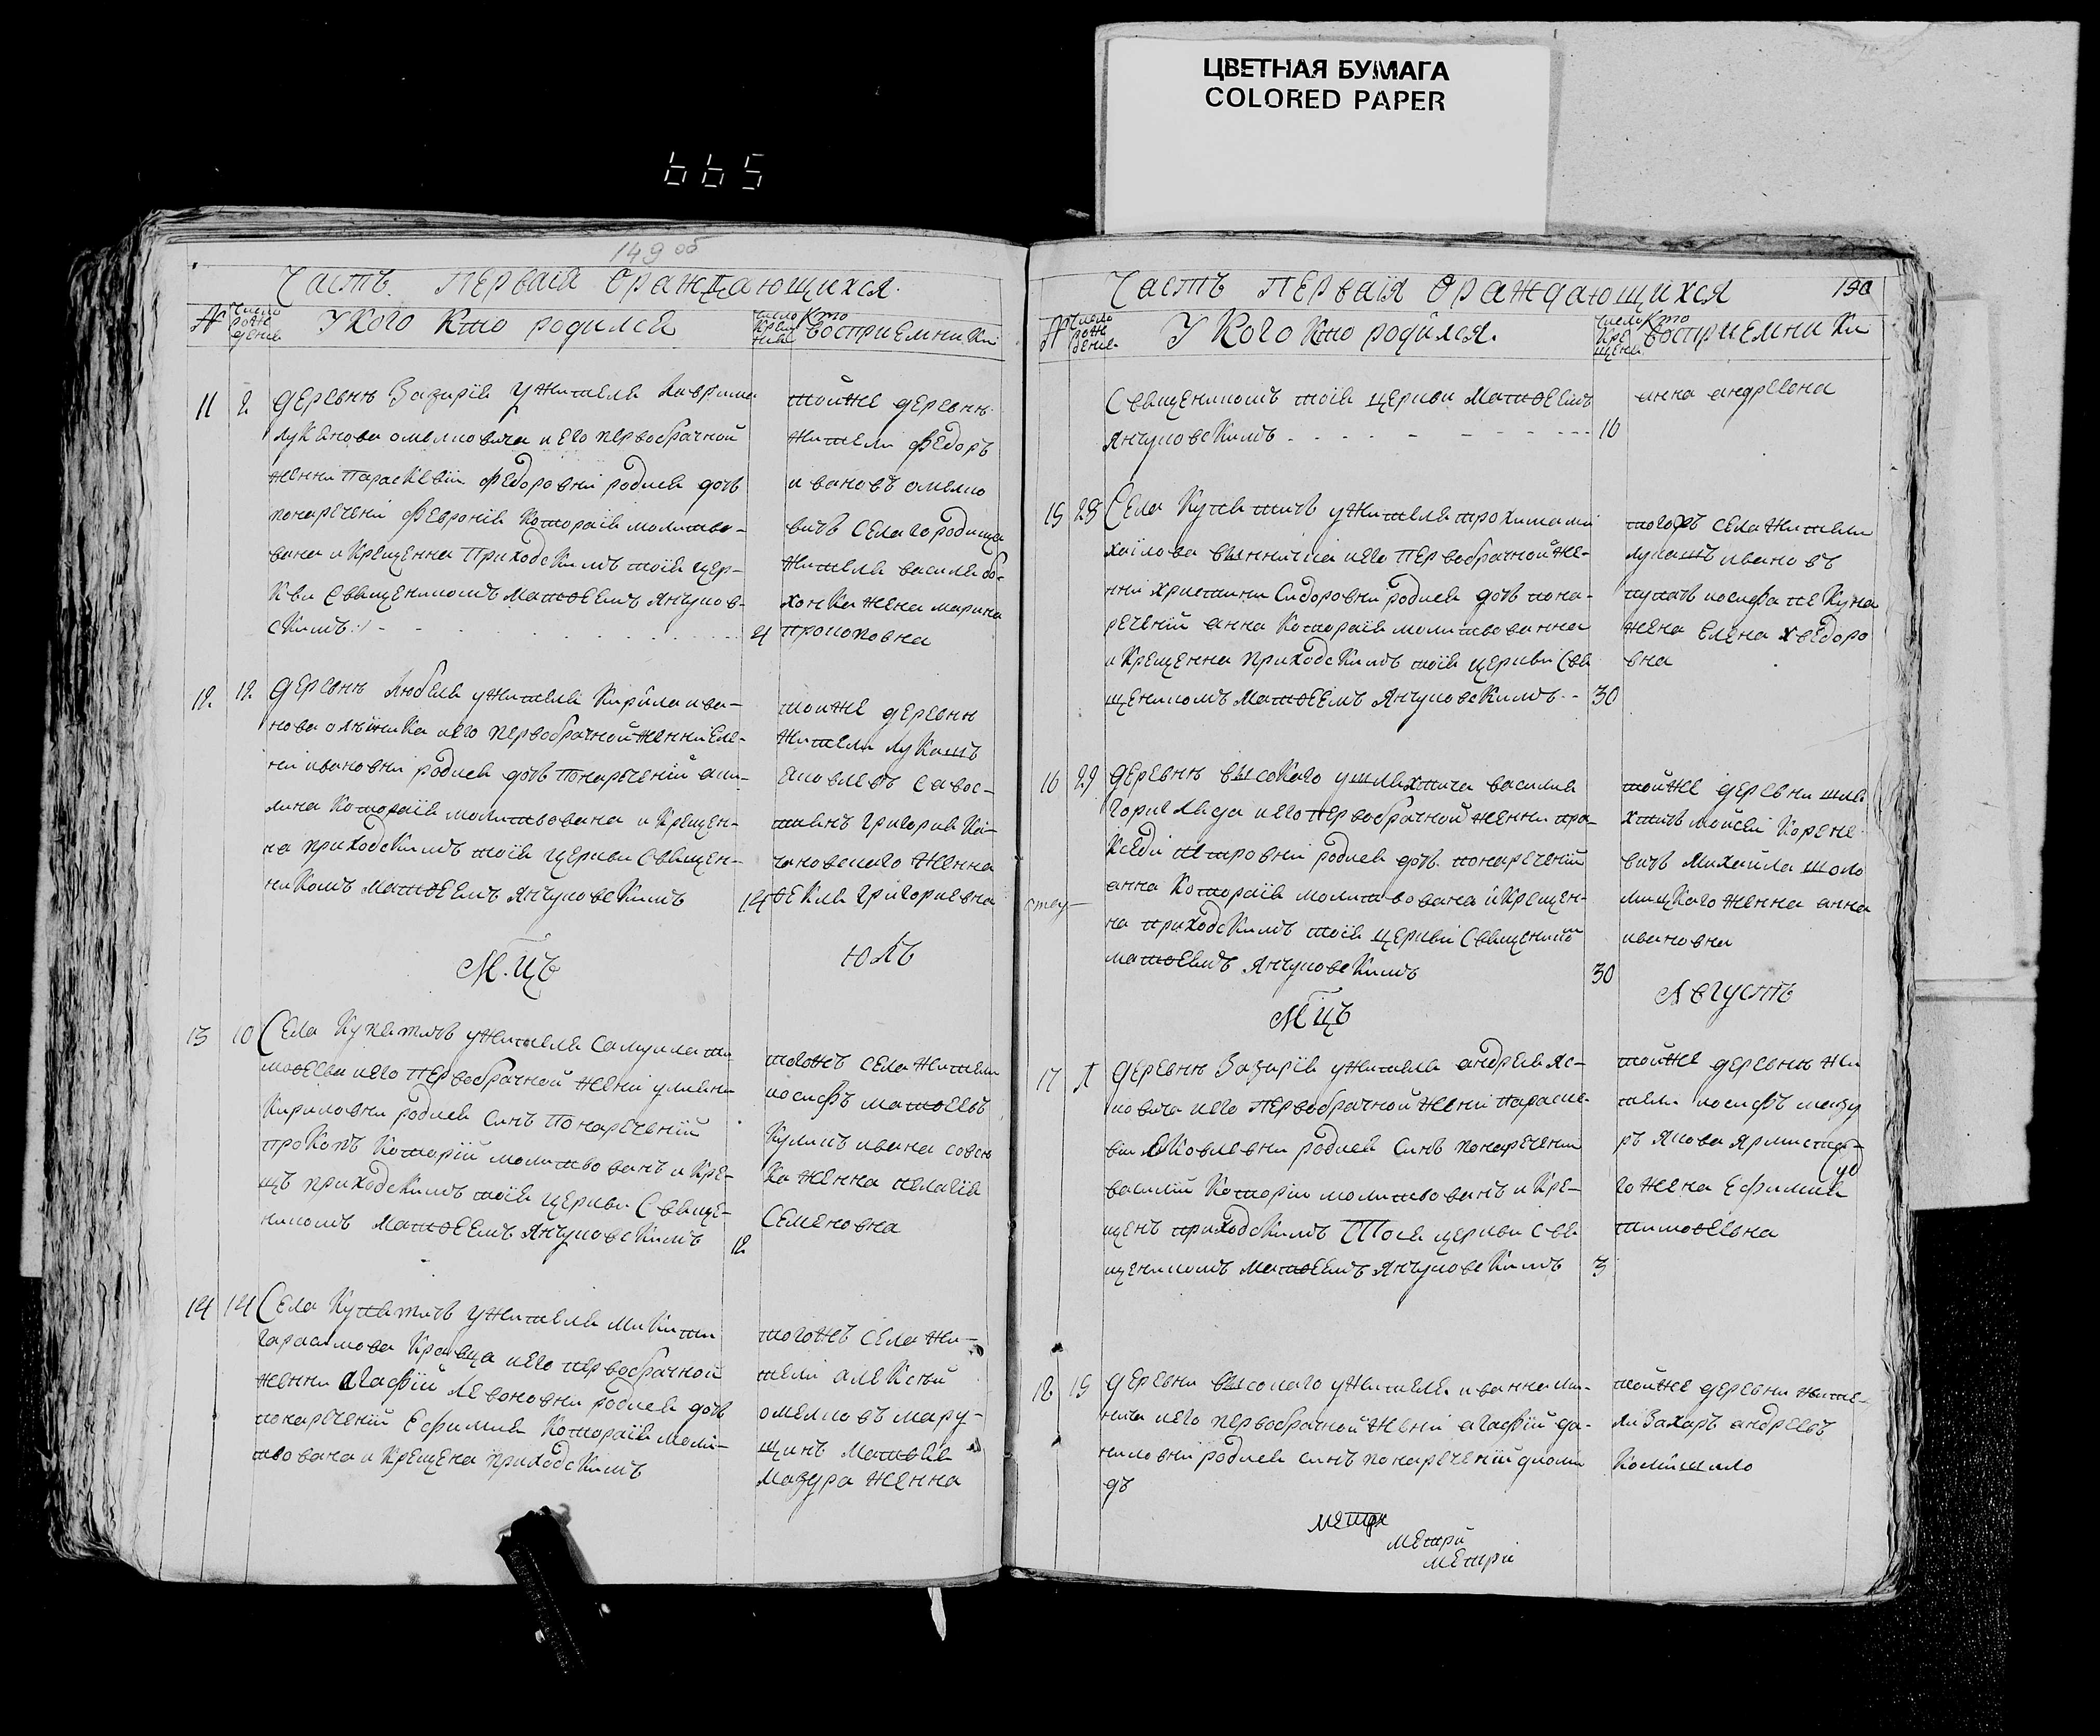 ЦВЕТНАЯ БУМАГА
COLORED PAPER
665
149 об
Часть Первая Ораждающихся.
№ Число рожденія
У Кого Кто родился
Число Крещенія
Кто Восприемники
11 2. деревнѣ Вазирія у жителя
Лукянова омеляновича и его первобрачной
женни Параскевіи Федоровни родися дочь
понаречені Февронія Которая молитво-
вана и Крещенна Приходскимъ тоїя цер-
Кви Священикомъ Матѳеемъ Янчуков-
скимъ 4
тойже деревнѣ
жители Федоръ
ивановъ омеляно
вичъ села городища
жителя василя бо-
хонка жена марина
прокоповна
12. 12. деревнѣ Любеля у жителя Кирила ива-
нова олѣйника и его первобрачной женни Еле-
ни ивановни родися дочь понареченій аки-
лина Которая молитвована и Крещен-
на приходскимъ тоїя церкви Священ-
никомъ Матѳеемъ Янчуковскимъ 14
тойже деревнѣ
жители Лукашъ
Яковлевъ савос-
тянъ григорія Ка-
чановскаго женна
ѳекля григориевна
М.Цъ Юлъ
13 10 Села Купятичъ у жителя Самуила ти
моѳеева и его первобрачной жені уляни
Кириловни родися синъ понареченій
проКопъ Который молитвованъ и Кре-
щъ приходскимъ тоїя церкви Свяще-
никомъ Матѳеемъ Янчуковскимъ 12
тогожъ села жители
иосифъ матѳеевъ
Кулишъ ивана
женна пелагія
Семеновна
14 14 Села Купятичъ у жителя Микити
гарасимова Кравца и его первобрачной
женни агафіи Левоновни родися дочь
понареченій Ефимия Которая моли-
твована и Крещена приходскимъ
тогожъ села жи-
тели алексѣй
омеляновъ мару-
щинъ Матѳея
Мазура женна
Часть Первая Ораждающихся 150
№ Число рожденія
У Кого Кто родился.
Число Крещени
Кто Восприемники
Священикомъ тоїя церкви Матѳеемъ
Янчуковскимъ 16
анна андреевна
15 28 Села Купятичъ у жителя трохима ми
хайлова и его первобрачной же-
нни христини Сидоровни родися дочь пона-
реченій анна Которая молитвованна
и Крещенна приходскимъ тоїя церкви Свя
щеникомъ Матѳеемъ Янчуковскимъ 30
тогожъ села жители
лукашъ ивановъ
иосифа пекуна
жена Елена хведоро
вна
16 29 деревнѣ высокаго у шляхтича василия
и его первобрачной женни пра-
Кседи петровни родися дочь понареченій
анна Которая молитвована и Крещен-
на приходскимъ тоїя церкви Священико
матѳеемъ Янчуковскимъ 30
тойже деревни шля
хтичъ мойсей Корене
вичъ Михайла шоло
мицкаго женна анна
ивановна
МЦъ Августъ
17 деревнѣ Вазирія у жителя андрея Яс-
ковича и его первобрачной жени параске-
вии Яковлевни родися синъ понаречени
василий Которій молитвованъ и Кре-
щенъ приходскимъ Тоея церкви Свя
щеникомъ Матѳеемъ Янчуковскимъ 3
тойже деревнѣ жи
тели иосифъ мазу
ръ Якова
го жена Ефимия
тимоѳеевна
18 15 деревни высокаго у жителя ивана
и его первобрачной жені агафіи да-
ниловни родися синъ понареченій диоми
дъ
тойже деревни жите-
ли захаръ андреевъ
метри
метри
метри